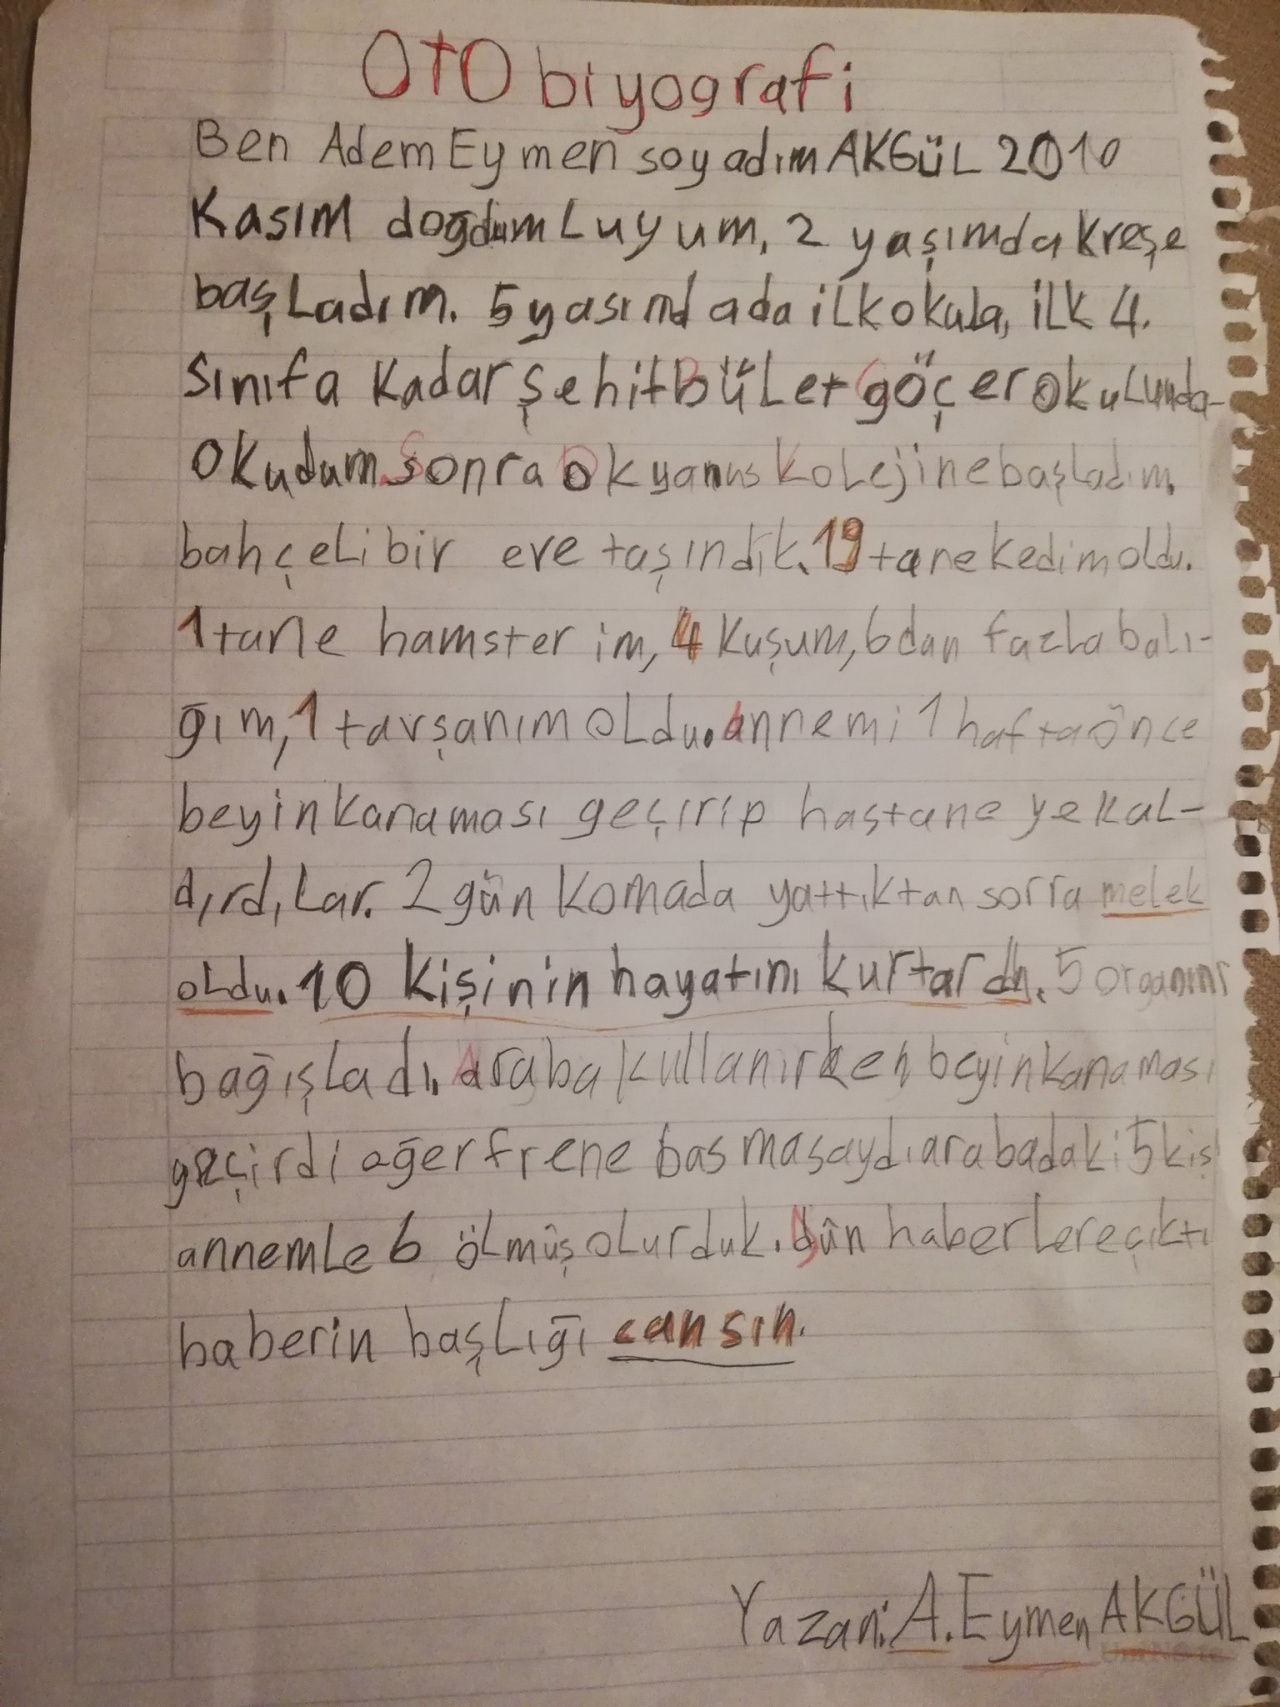 OTObiyografi
Ben Adem Eymen soyadım AKGÜL 2010
Kasım doğdumluyum, 2 yaşımda kreşe
başladım. 5 yasındada ilkokula, ilk 4.
Sınıfa Kadar şehit Büler göçer okulunda
okudum. Sonra Okyanus Kolejine başladım.
bahçeli bir eve taşındık. 19 tane kedim oldu.
1 tane hamster im, 4 Kuşum, 6dan fazla balı-
ğım, 1 tavşanım oldu. Annemi 1 hafta önce
beyin kanaması geçirip hastane ye kal-
dırdılar. 2 gün komada yattıktan sorra melek
oldu. 10 kişinin hayatını kurtardı. 5 organını
bağışladı. Araba kullanırken beyin kanaması
geçirdi eğer frene basmasaydı arabadaki 5 kiş
annemle 6 ölmüş olurduk. Dün haberlere çıktı
haberin başlığı cansın.
Yazan: A. Eymen AKGÜL